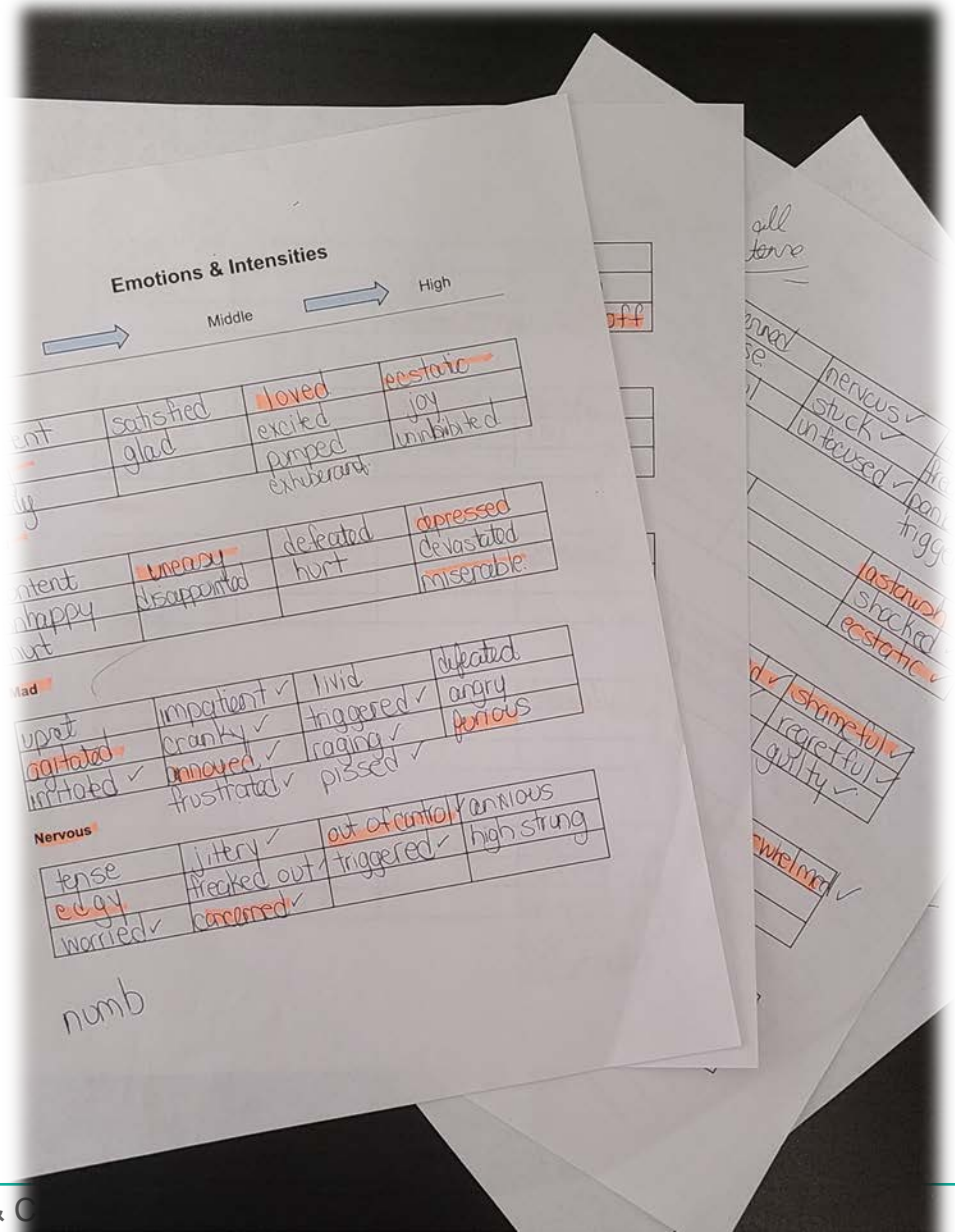 Emotions & Intensities
Middle High
satisfied loved ecstatic
glad excited joy
pumped uninhibited
exhuberant
uneasy defeated depressed
disappointed hurt devastated
miserable
Mad
upset impatient ✓ livid defeated
agitated cranky ✓ triggered ✓ angry
irritated ✓ annoyed ✓ raging ✓ furious
frustrated ✓ pissed ✓
Nervous
tense jittery ✓ out of control ✓ anxious
edgy freaked out triggered ✓ high strung
worried ✓ concerned ✓
numb
off
all
nervous ✓
stuck ✓
unfocused ✓
shocked
ecstatic ✓
shameful ✓
regretful ✓
guilty ✓
&